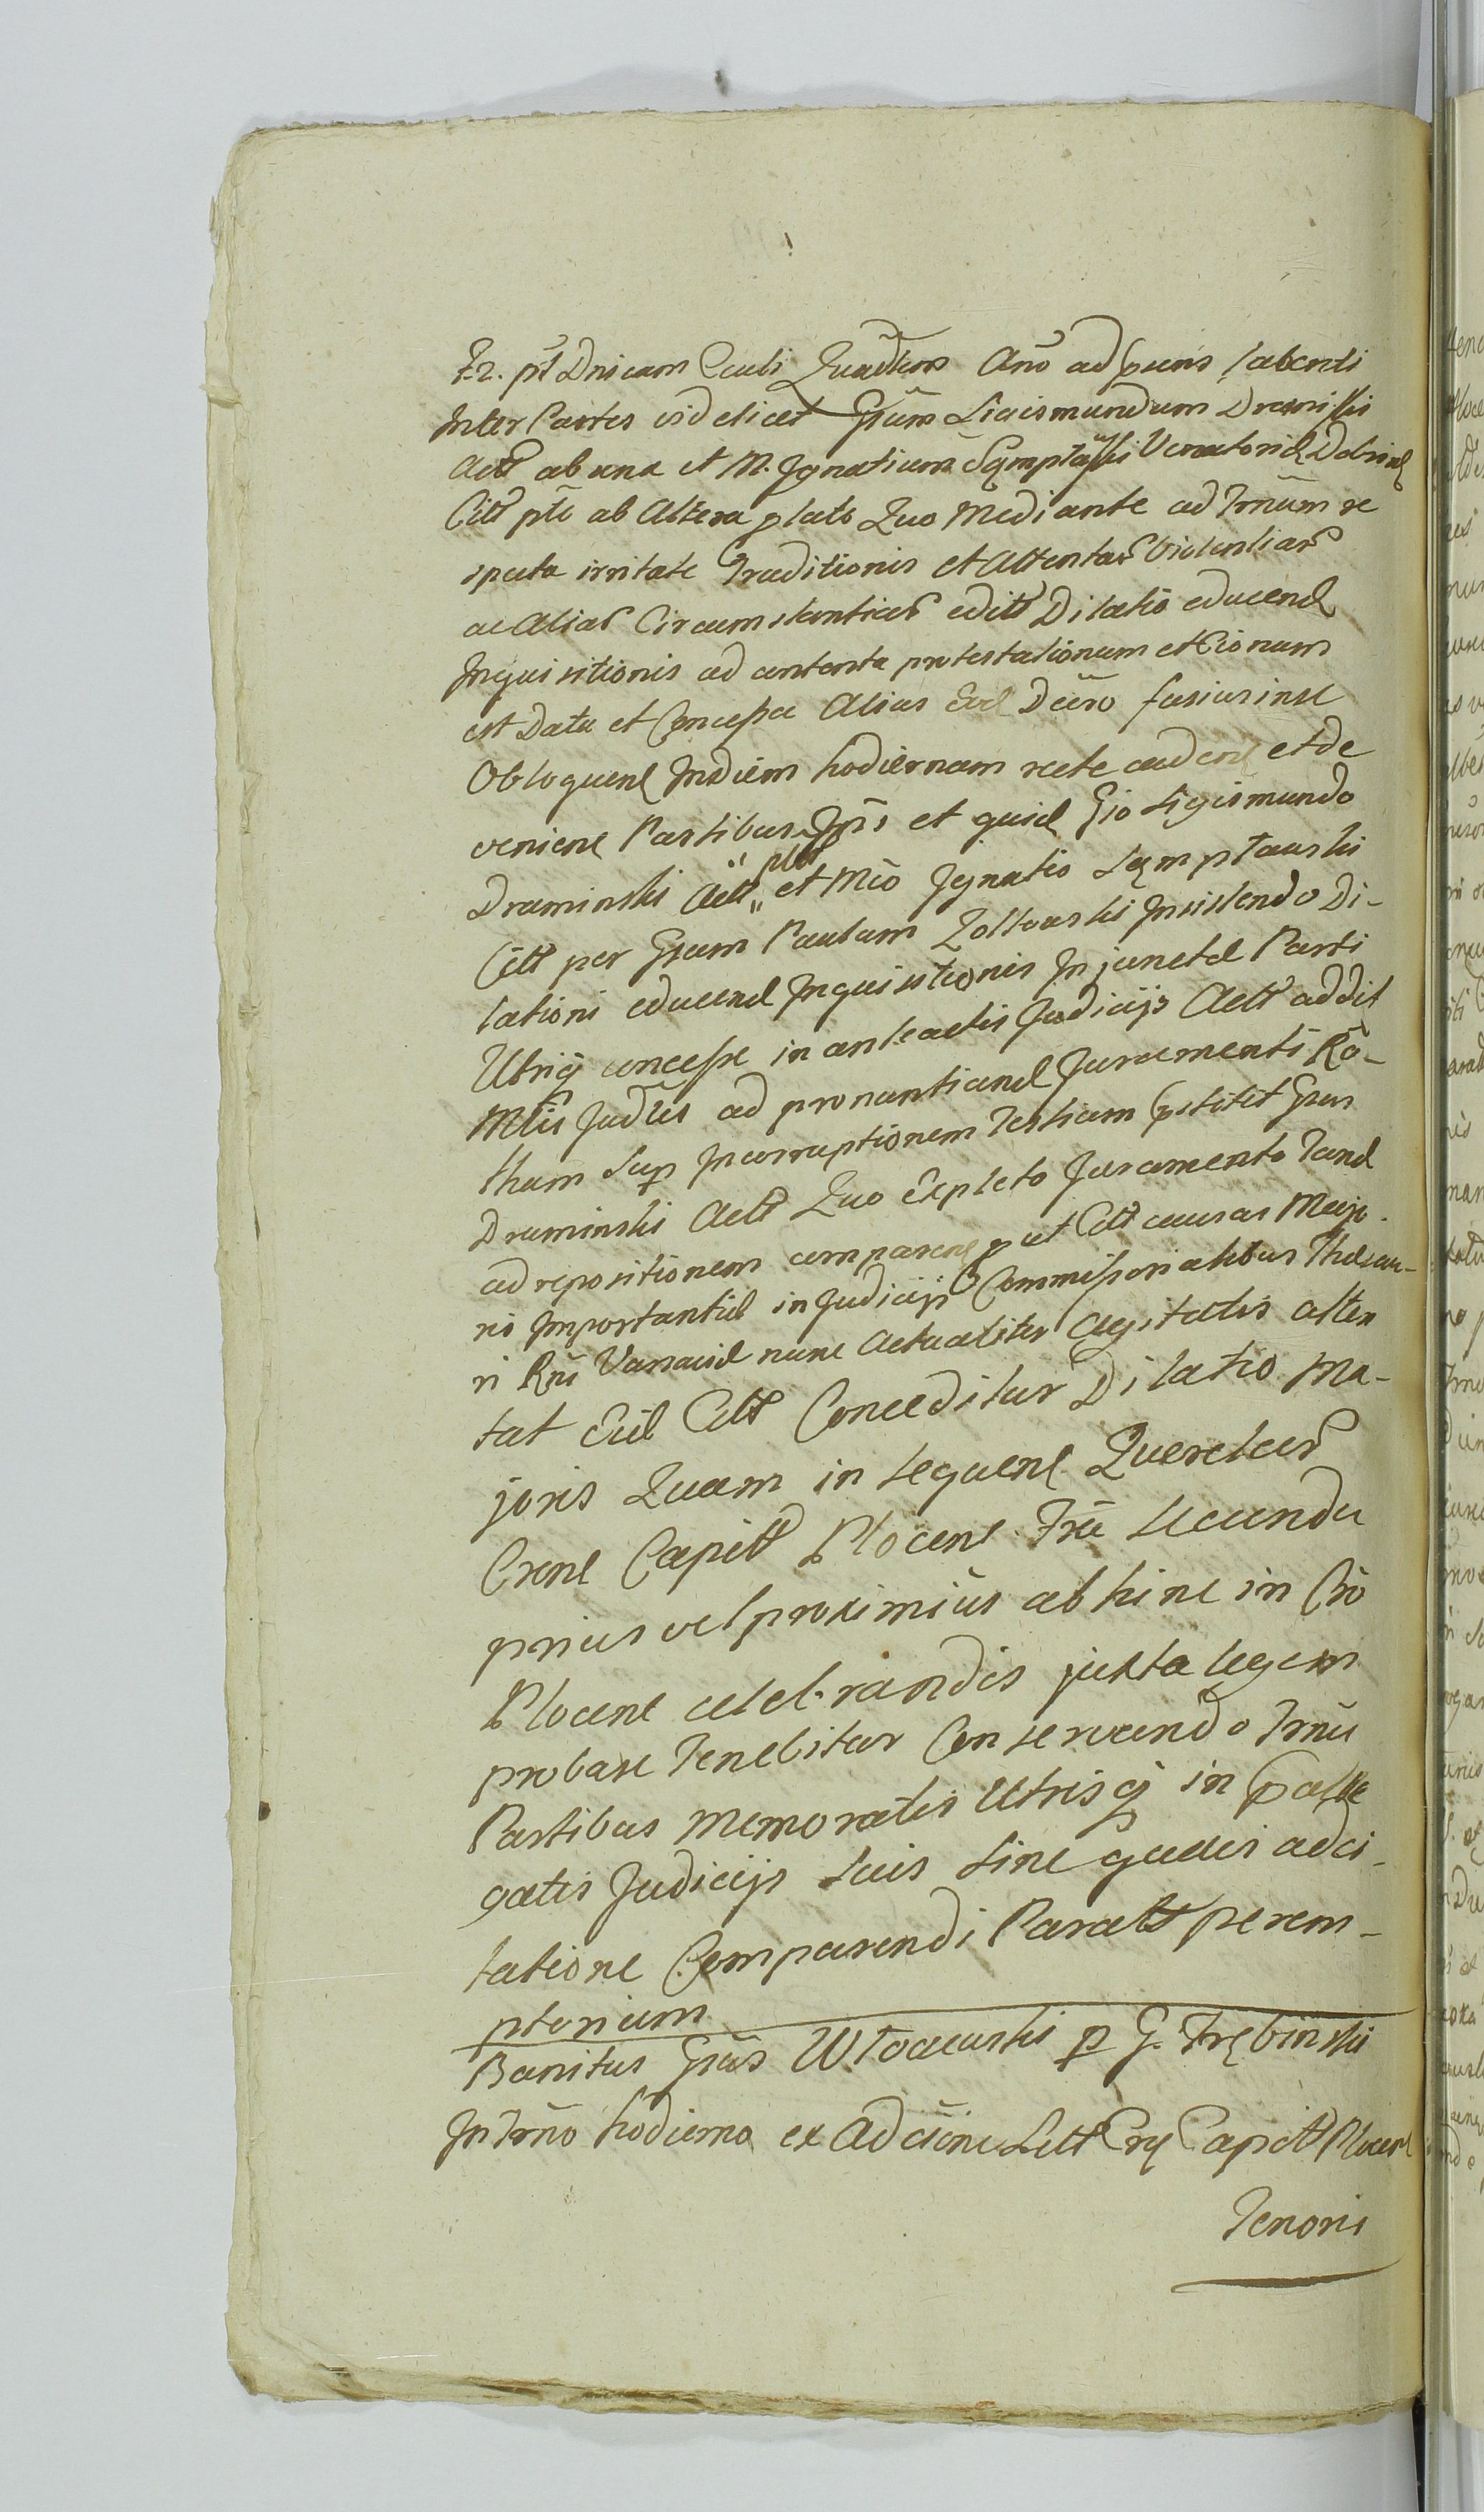 F. 2. pt Dnicam Oculi Quadtem Ano ad pnns labenti
Inter Partes videlicet Gsum Sigismundum Draminski
Actt ab una et M. Ignatium Sęmptawski Venatorid Dobrinen
Citt pte ab Altera plato Quo Mediante ad Trnum re
speta irritate Traditionis et Attentar Violentiar
ac Aliar Circumstantiar editt Dilatio educend
Inquisitionis ad contenta protestationum et Cionum
est Data et Concessa Alias Eod Decro fusius inse
Obloquen In diem hodiernam recte caden et de
venien Partibus Ipsis et quid Gso Sigismundo
Draminski Actt plbt et Mco Ignatio Sęmptawski
Citt per Gsum Paulum Zoltowski Insistendo Di-
lationi educend Inquisitionis Injunctd Parti
Utriq concesse in anteactis Judicijs Actt addit
Mtis Judtis ad pronuntiand Juramenti Ro-
tham Sup Incorruptionem Testium pstitit Gsus
Draminski Actt Quo Expleto Juramento Tand
ad repositionem comparen p ut Citt causas Majo-
ris Importantid in Judicijs Commissorialibus Thesau-
ri Rni Varsavid nunc Actualiter Agitatis atten
tat Eid Citt Conceditur Dilatio Ma-
joris Quam in sequen Querelar
Cren Capitt Plocen Fria Secunda
prius vel proximius ab hinc in Cro
Plocen celebrandis juxta legem
probare Tenebitur Conservando Trnu
Partibus Memoratis Utrisq in passe
gatis Judicijs Suis Sine quavis adci-
tatione Comparendi Paratt perem-
ptorium
Banitus Gsus Wtoaewski p G. Trębinski
In Trno hodierno ex Adcione Litt Cry Capitt Plocen
Tenoris